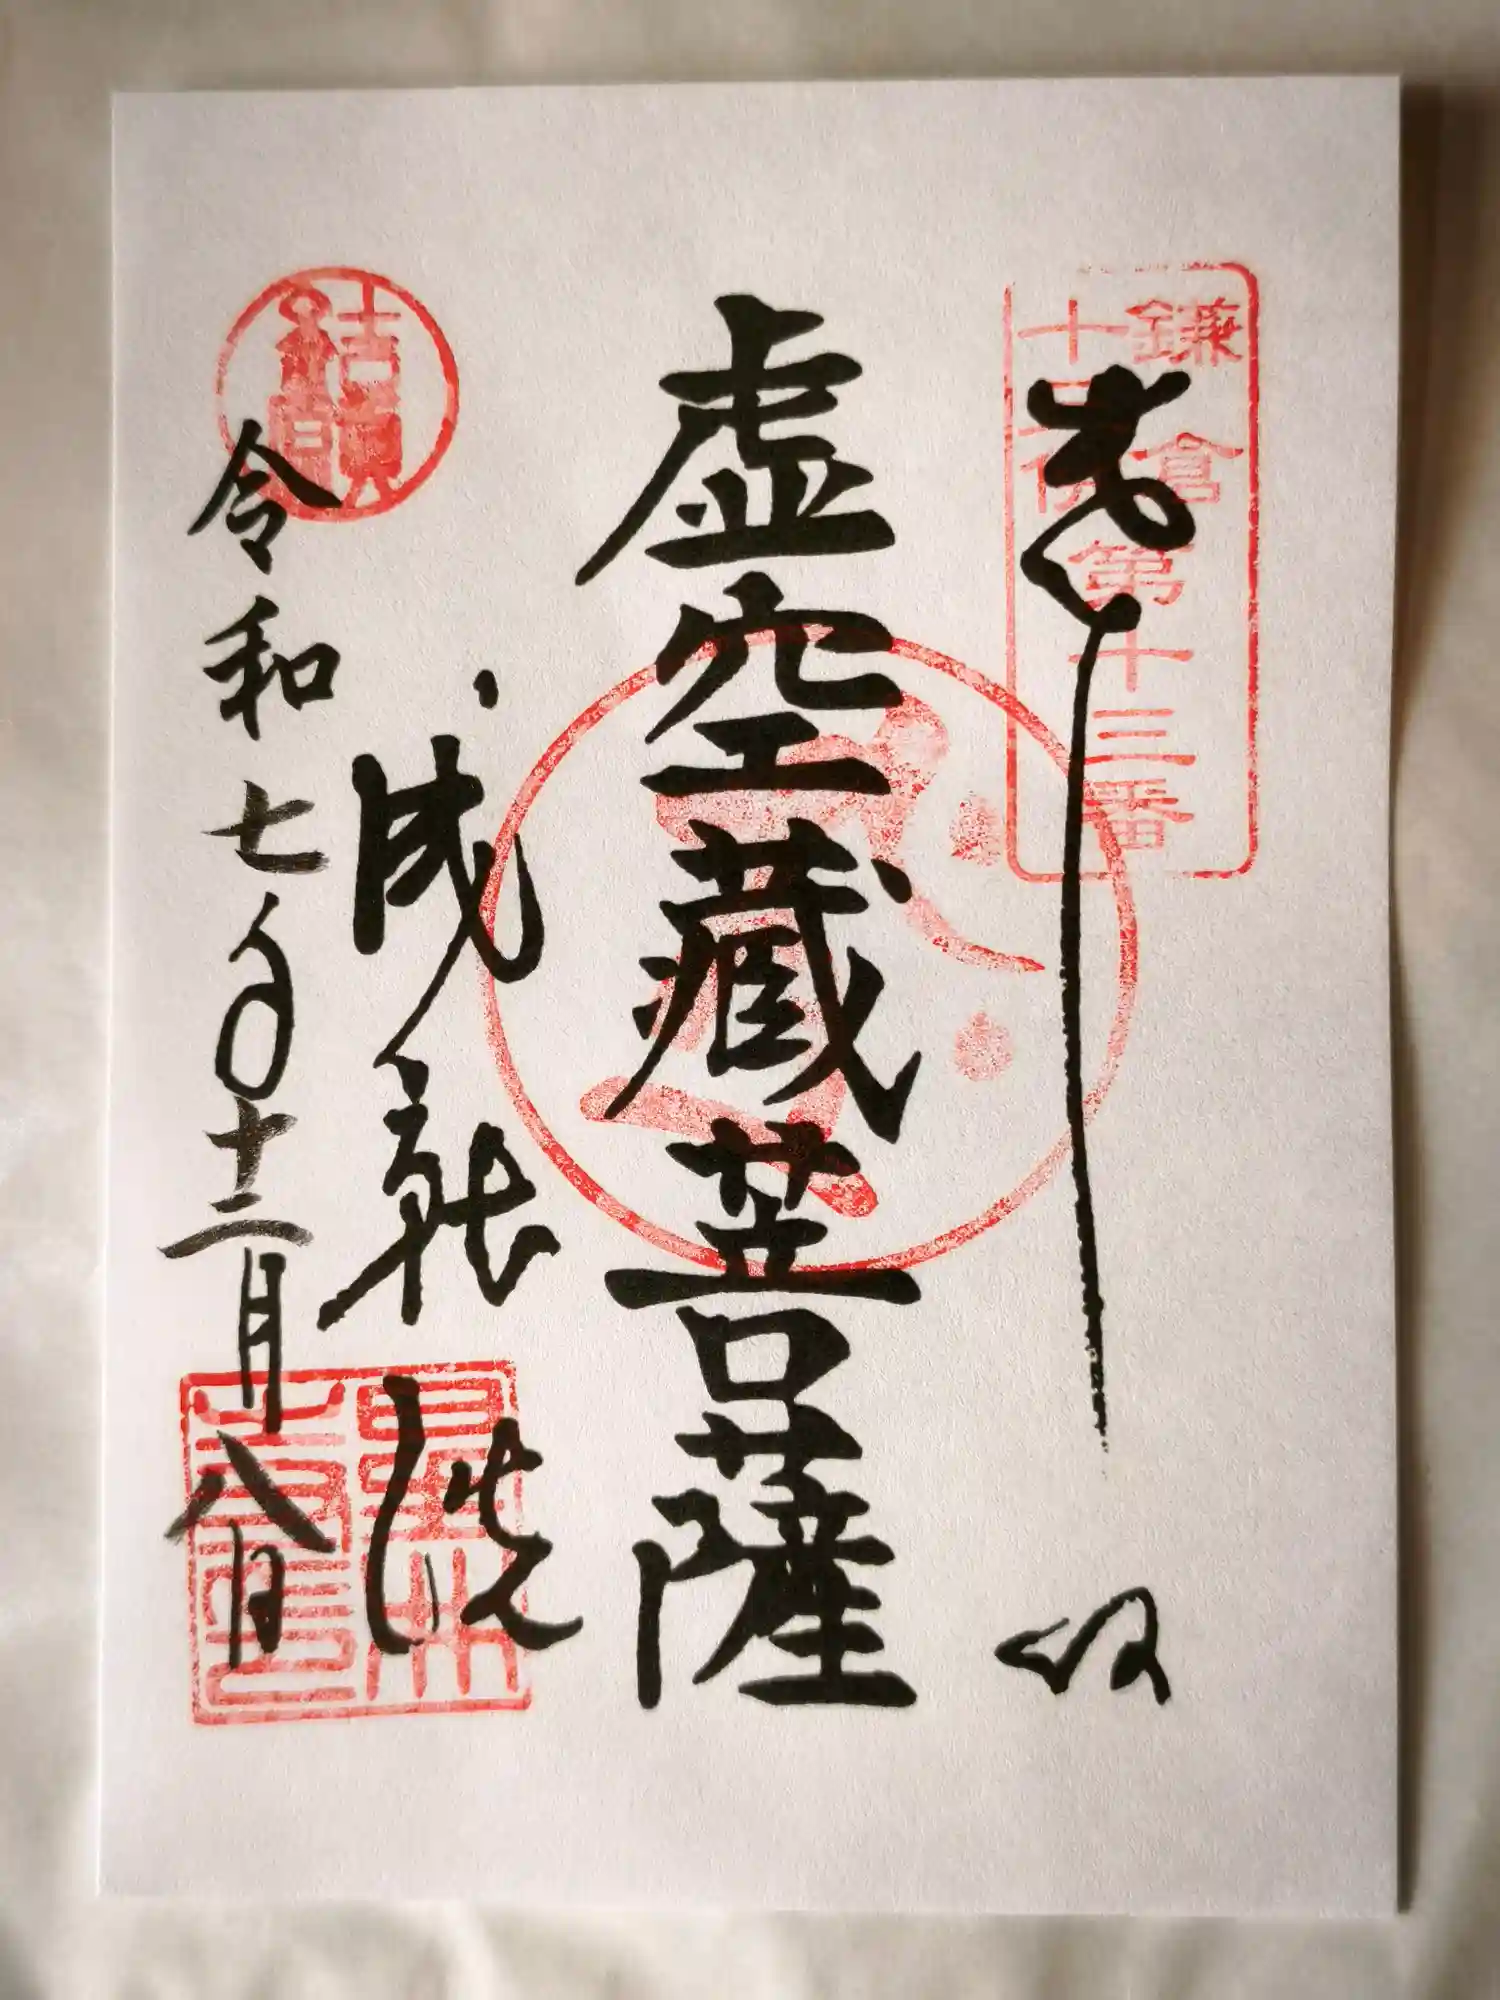 鎌倉
十三佛
第十三番
奉拝
虚空蔵菩薩
成就院
令和七年十二月八日
結願